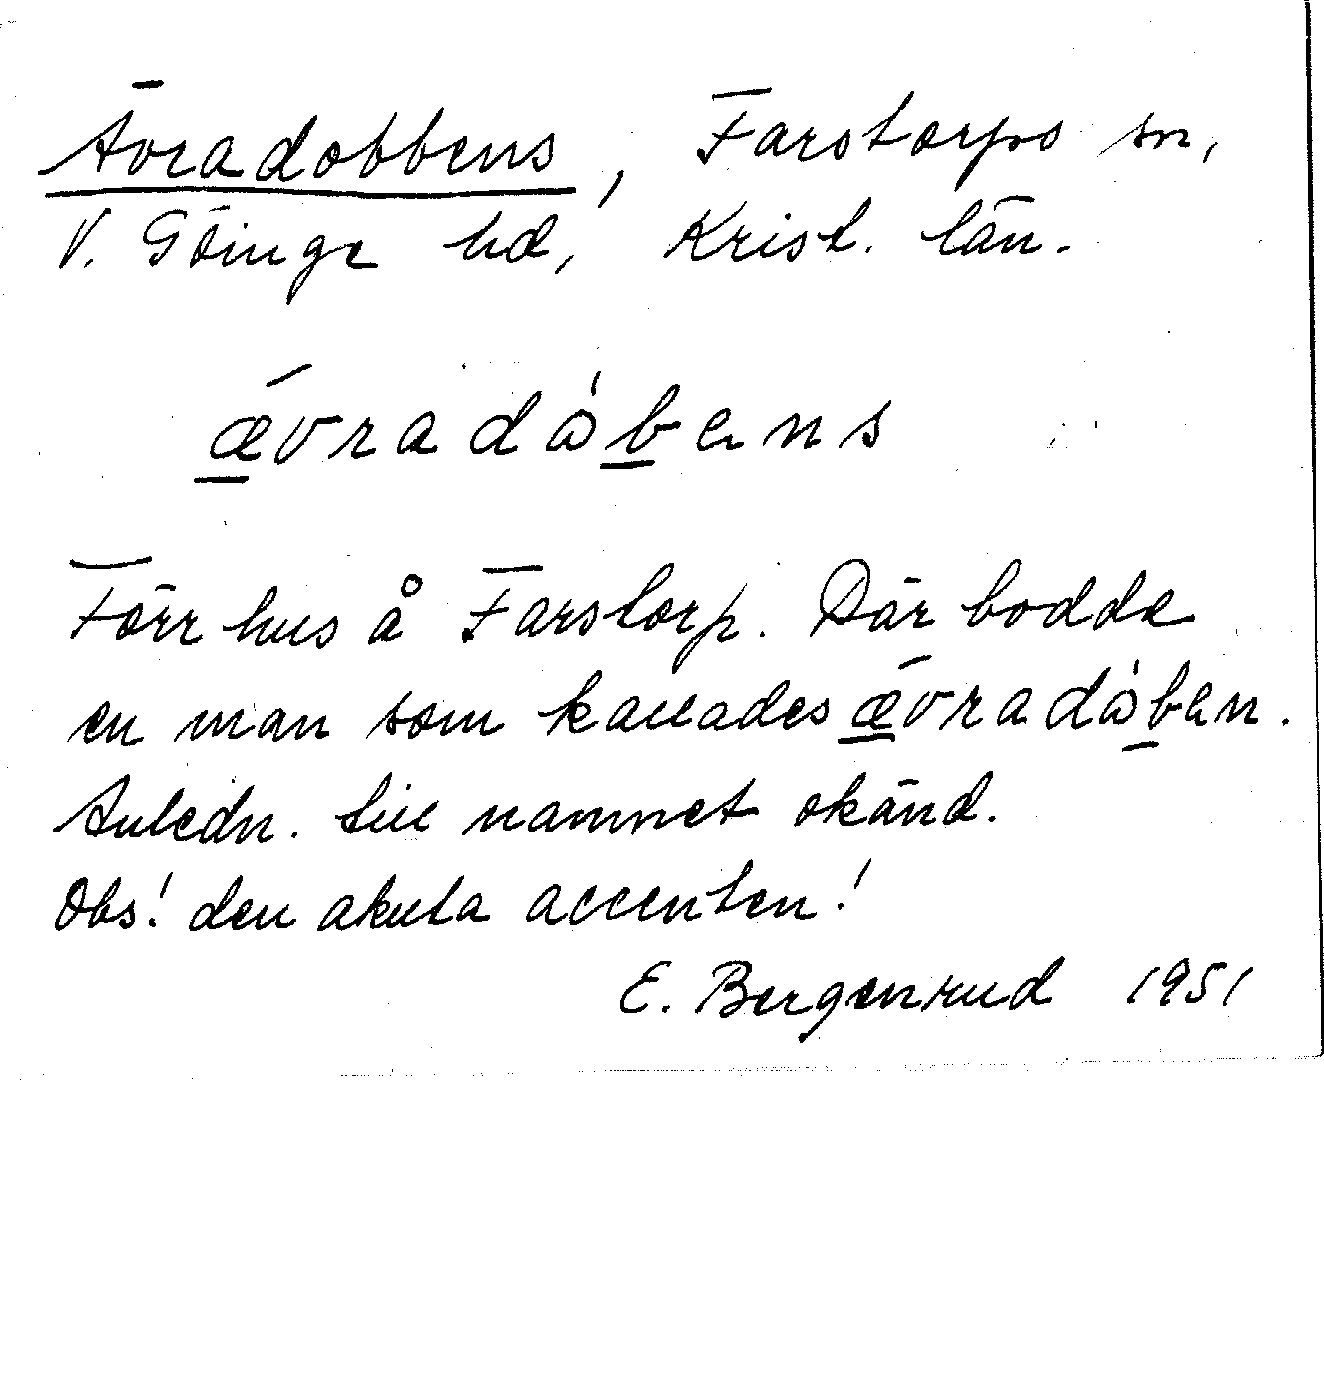 Ävradobbens, Farstorps sn,
V. Göinge hd, Krist. län.
ævradábens
Förr hus å Farstorp. Där bodde
en man som kallades ævradáben.
Anledn. till namnet okänd.
Obs! den akuta accenten!
E. Bergenrud 1951